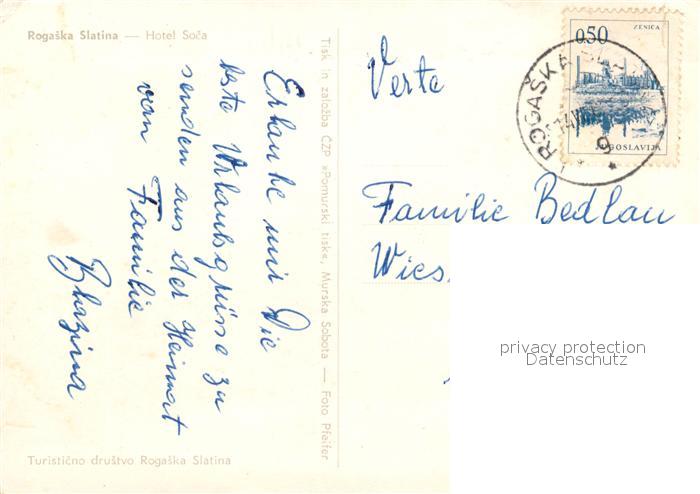 Rogaška Slatina — Hotel Soča
Erlaube mir Die
beste Urlaubsgrüsse zu
senden aus der Heimat
von Familie
Turistično društvo Rogaška Slatina
Tisk in založba ČZP »Pomurski tisk«, Murska Sobota — Foto Pfeifer
ZENICA
0,50
JUGOSLAVIJA
ROGAŠKA
Verte
Familie Bedlau
Wies.
privacy protection
Datenschutz